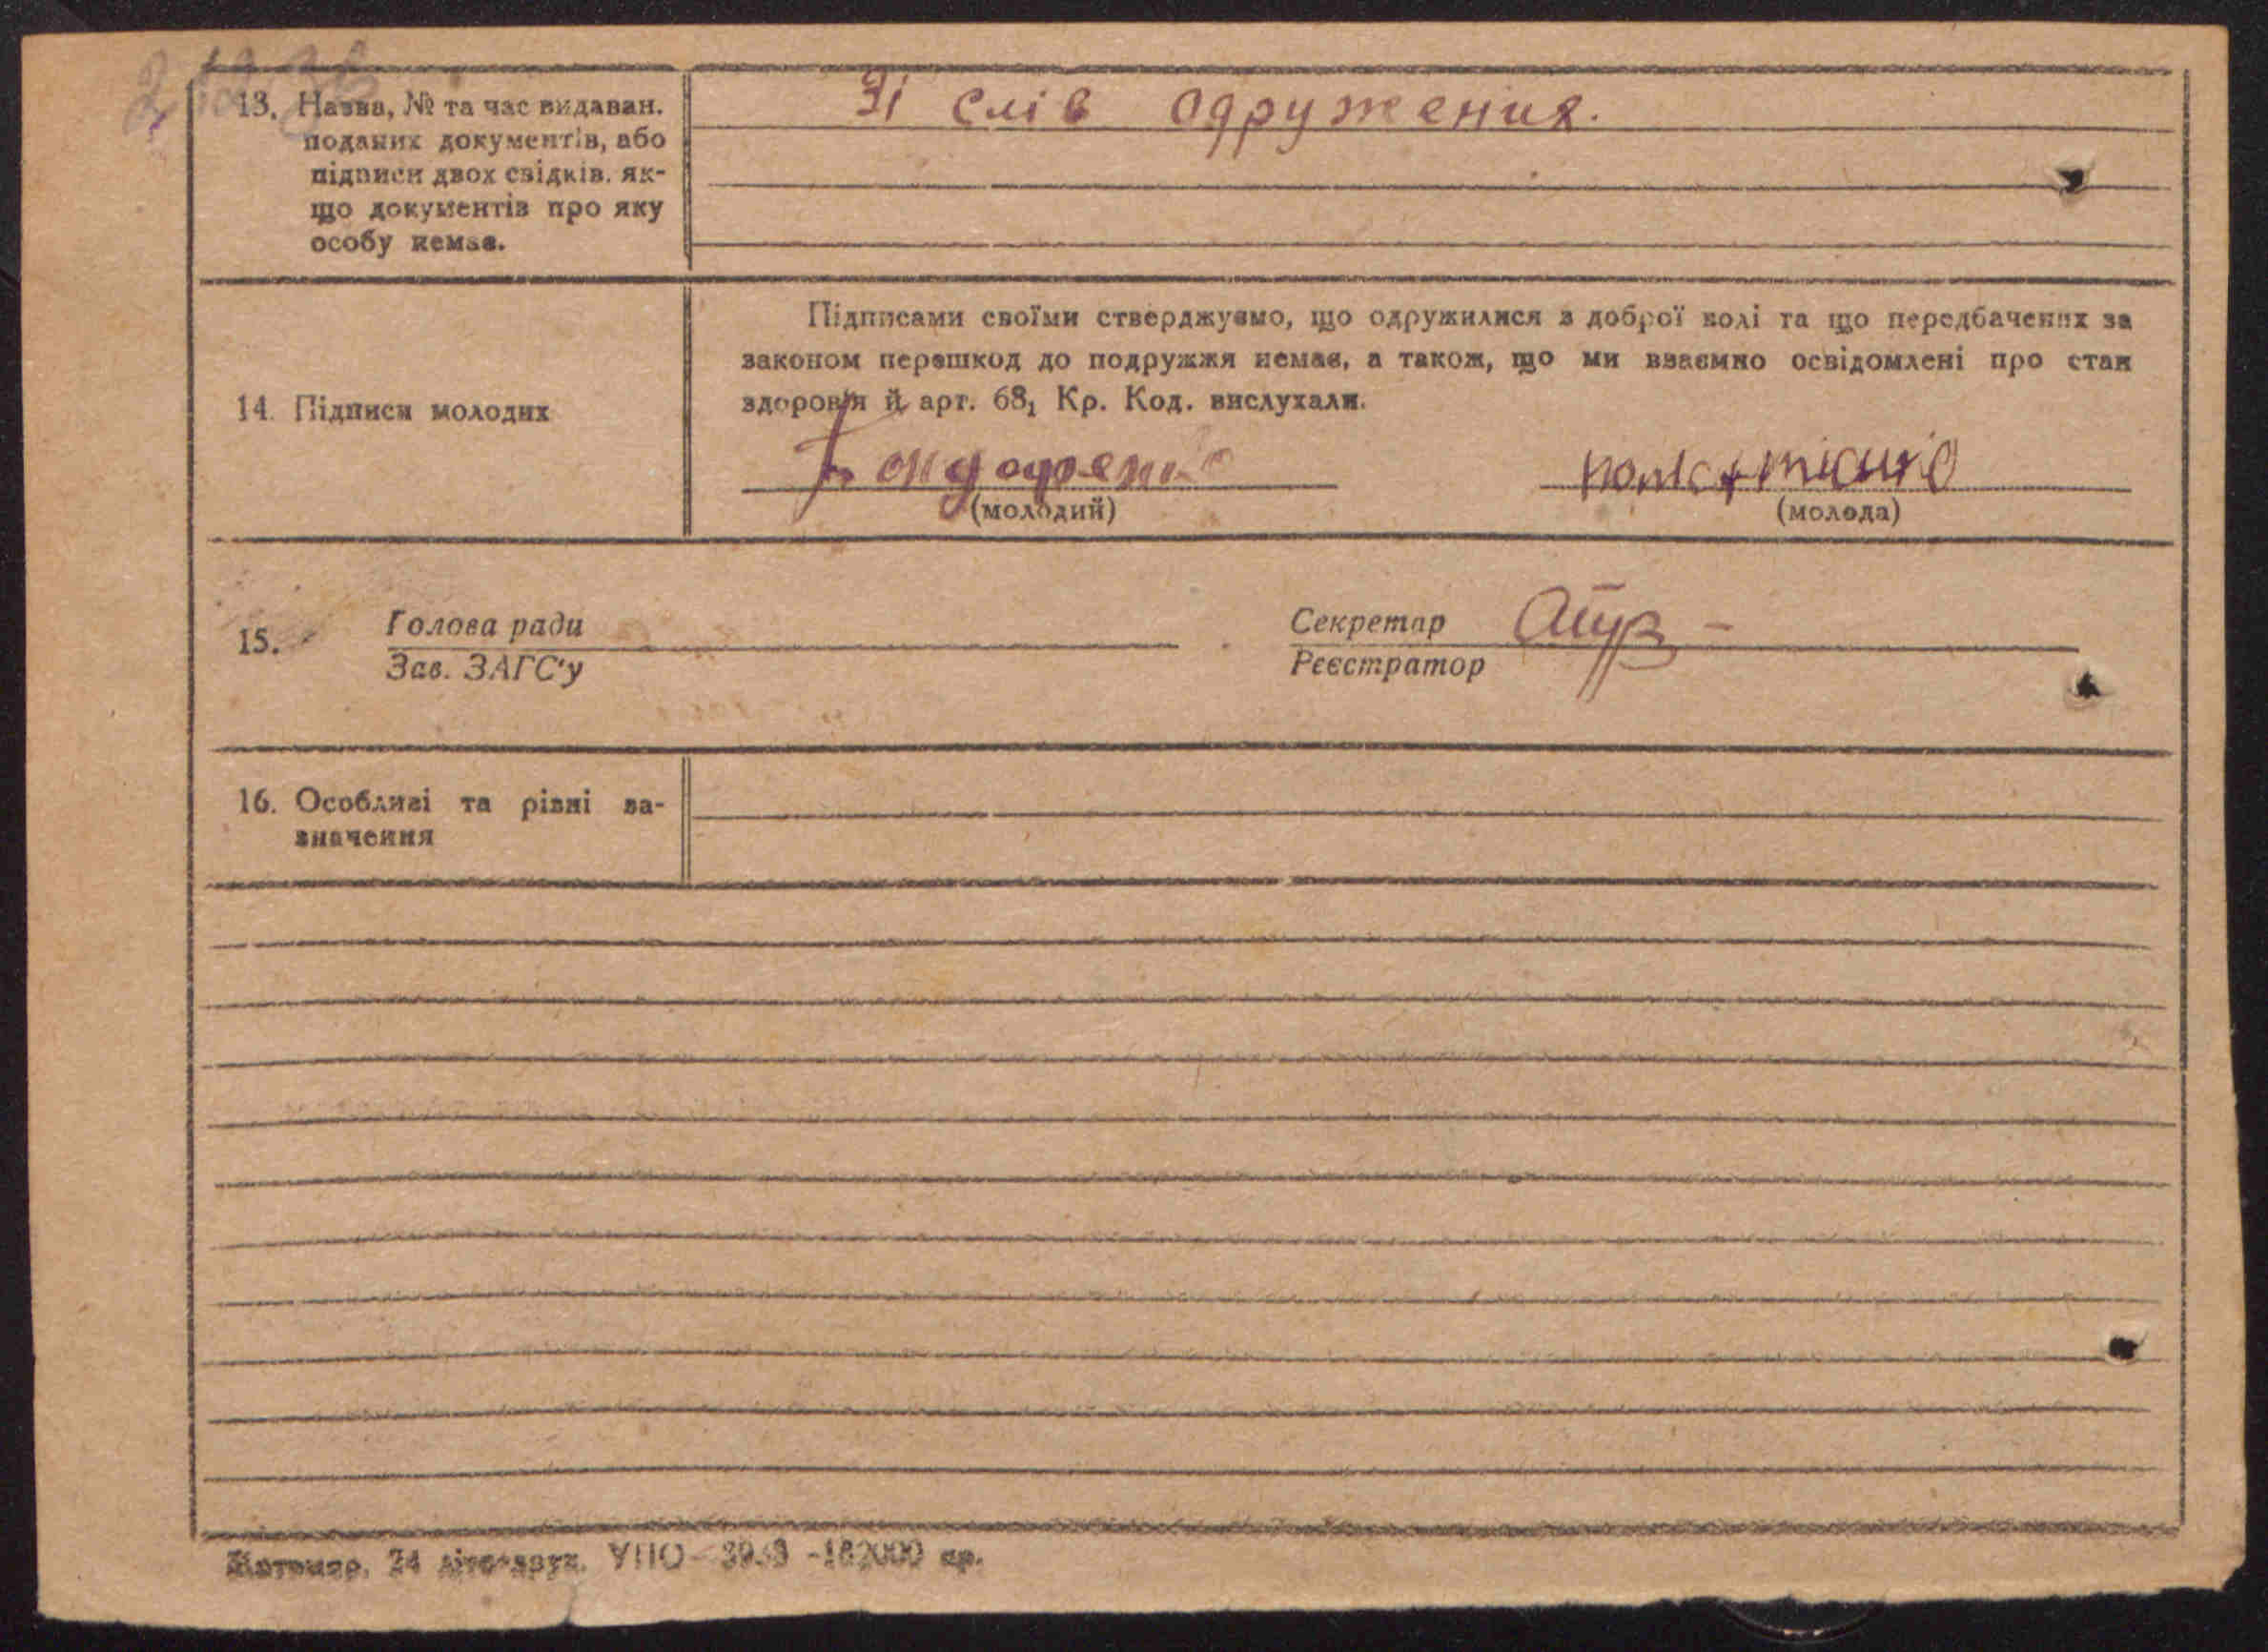 13. Назва, № та час видаван.
поданих документів, або
підписи двох свідків, як-
що документів про яку
особу немає.
Зі слів одруження.
14. Підписи молодих
Підписами своїми стверджуємо, що одружилися з доброї волі та що передбачених за
законом перешкод до подружжя немає, а також, що ми взаємно освідомлені про стан
здоров'я й арт. 68₁ Кр. Код. вислухали.
(молодий)
(молода)
15. Голова ради
Зав. ЗАГС'у
Секретар
Реєстратор
16. Особливі та різні за-
значення
24 УПО - -182000 пр.